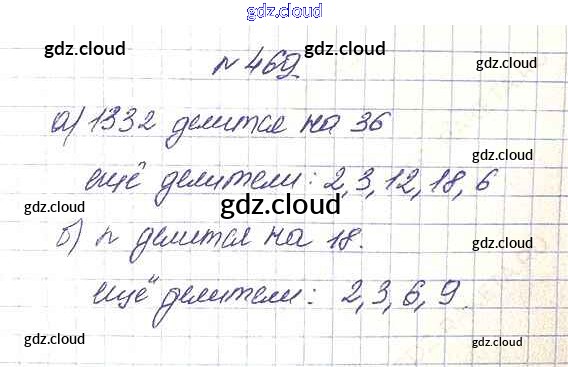 gdz.cloud
gdz.cloud gdz.cloud
№ 469
gdz.cloud
а) 1332 делится на 36
gdz.cloud
ещё делители: 2, 3, 12, 18, 6
gdz.cloud gdz.cloud
б) n делится на 18.
gdz.cloud
ещё делители: 2, 3, 6, 9.
gdz.cloud gdz.cloud gdz.cloud